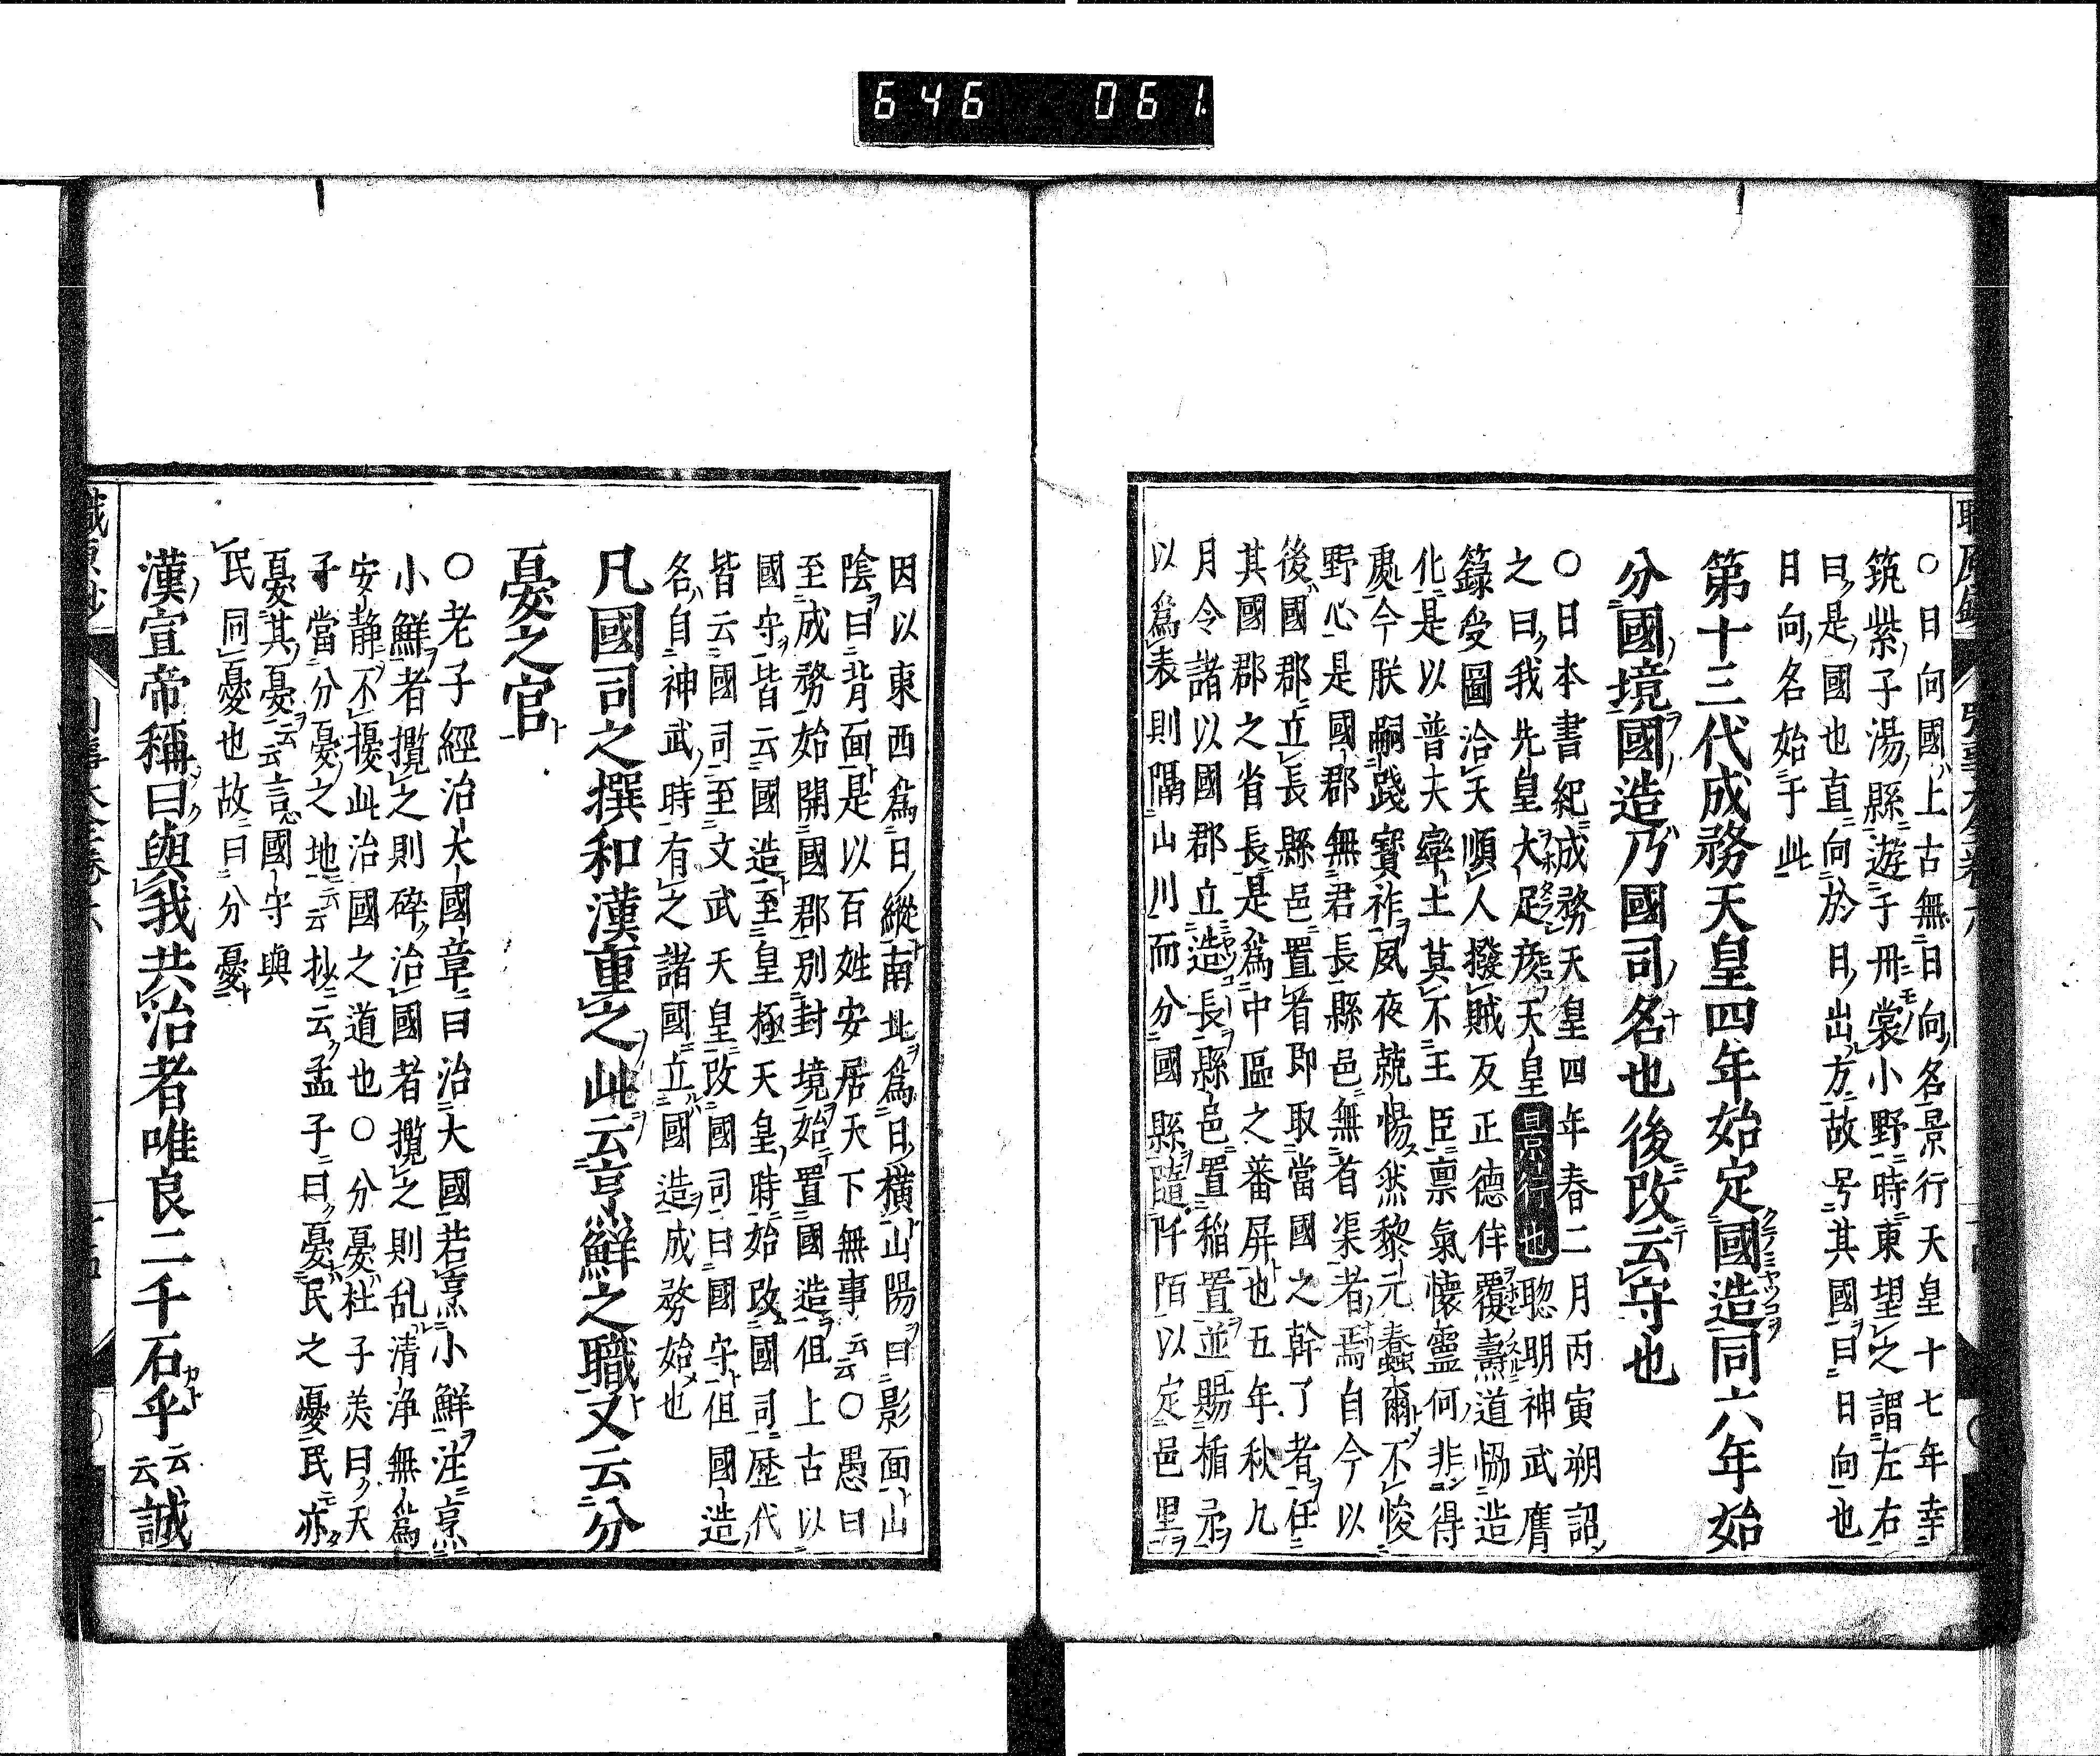 646 061
○日向國上古無日向名景行天皇十七年幸
筑紫子湯縣遊于丹裳小野時東望之謂左右
曰是國也直向於日出方故号其國曰日向也
日向名始于此
第十三代成務天皇四年始定國造同六年始
分國境國造乃國司名也後改云守也
○日本書紀成務天皇四年春二月丙寅朔詔
之曰我先皇大足彦天皇景行也聡明神武膺
籙受圖洽天順人撥賊反正德侔覆燾道協造
化是以普天率土莫不王臣禀氣懷靈何非得
處今朕嗣踐寶祚夙夜兢惕然黎元蠢爾不悛
野心是國郡無君長縣邑無首渠者焉自今以
後國郡立長縣邑置首即取當國之幹了者任
其國郡之首長是為中區之蕃屏也五年秋九
月令諸以國郡立造長縣邑置稲置並賜楯矛
以爲表則隔山川而分國縣隨阡陌以定邑里
因以東西爲日縱南北爲日横山陽曰影面山
陰曰背面是以百姓安居天下無事云云○愚曰
至成務始開國郡別封境始置國造但上古以
國守皆云國造至皇極天皇時始改國司歴代
皆云國司至文武天皇改國司曰國守但國造
名自神武時有之諸國立國造成務始也
凡國司之撰和漢重之此云亨鮮之職又云分
憂之官
○老子經治大國章曰治大國若烹小鮮注烹
小鮮者攪之則碎治國者攪之則乱清浄無爲
安静不擾此治國之道也○分憂杜子美曰天
子當分憂之地云云抄云孟子曰憂民之憂民亦
憂其憂云云言國守與
民同憂也故曰分憂
漢宣帝稱曰與我共治者唯良二千石乎云云誠